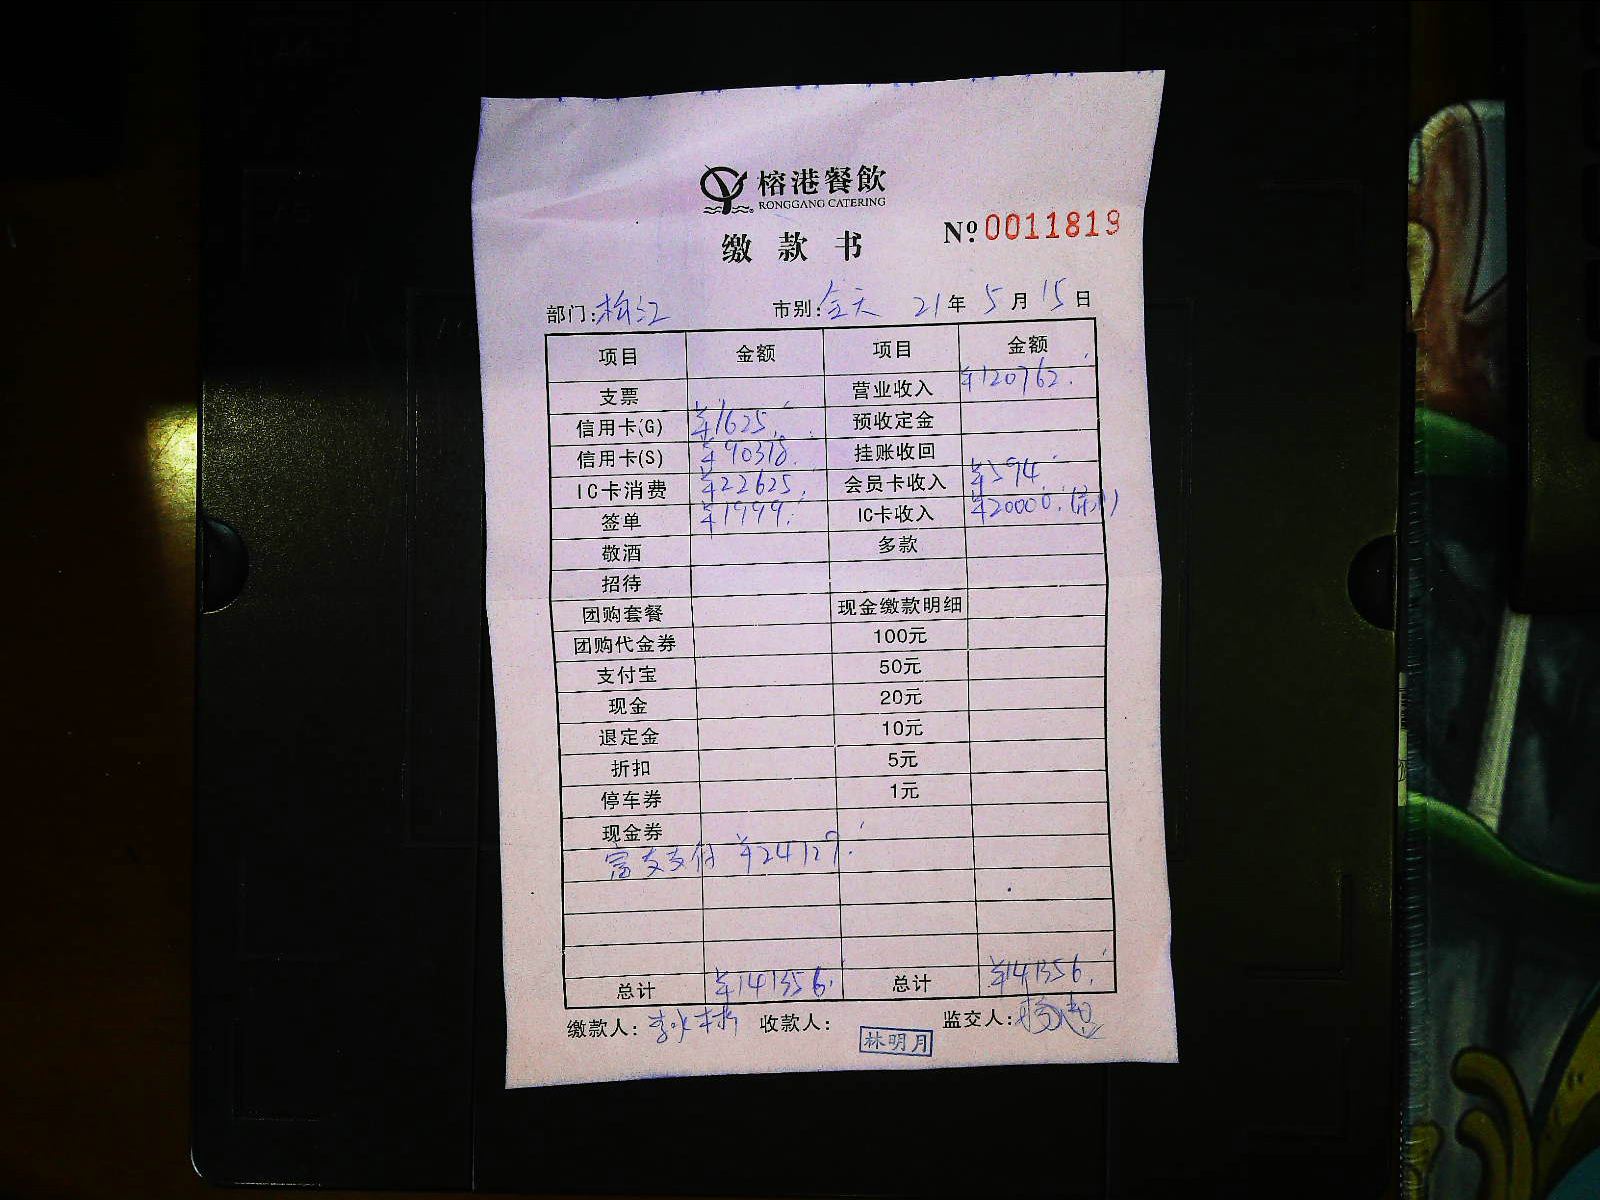 榕港餐飲
RONGGANG CATERING
缴款书
Nº 0011819
部门: 梅江 市别: 全天 21年 5月 15日
项目 金额 项目 金额
支票 营业收入 ¥120762.
信用卡(G) ¥1625. 预收定金
信用卡(S) ¥90318. 挂账收回
IC卡消费 ¥22625. 会员卡收入 ¥594.
签单 ¥1999. IC卡收入 ¥20000.
敬酒 多款
招待
团购套餐 现金缴款明细
团购代金券 100元
支付宝 50元
现金 20元
退定金 10元
折扣 5元
停车券 1元
现金券
富友支付 ¥24127.
总计 ¥141356. 总计 ¥141356.
缴款人: 收款人: 林明月 监交人: